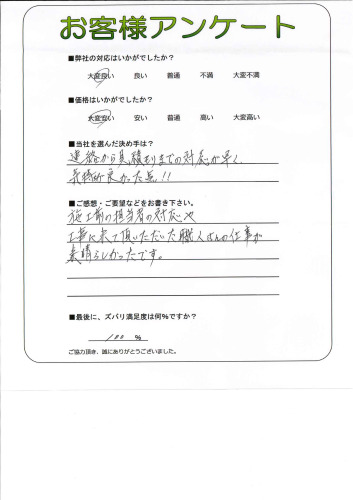 お客様アンケート
■弊社の対応はいかがでしたか?
大変良い 良い 普通 不満 大変不満
■価格はいかがでしたか?
大変安い 安い 普通 高い 大変高い
■当社を選んだ決め手は?
連絡から見積もりまでの対応が早く、
良かった点!!
■ご感想・ご要望などをお書き下さい。
施工前の担当者の対応や
工事に来て頂いただいた職人さんの仕事が
素晴らしかったです。
■最後に、ズバリ満足度は何%ですか?
100 %
ご協力頂き、誠にありがとうございました。